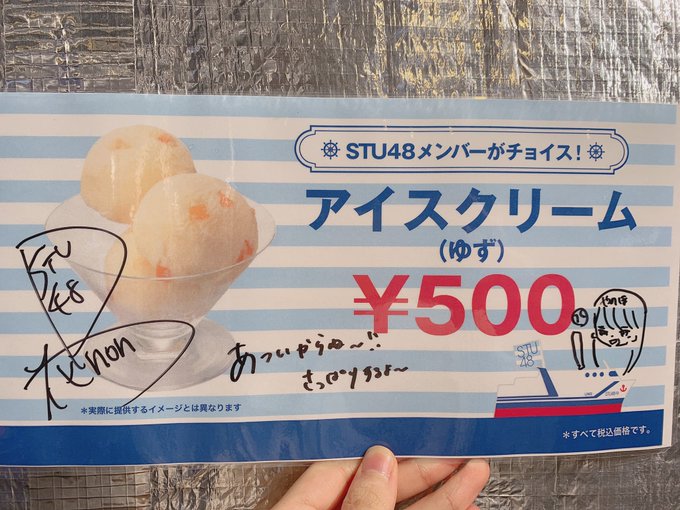 STU48メンバーがチョイス!
アイスクリーム
(ゆず)
¥500
STU
48
non
あついからね〜!!
さっぱりするよ〜
やほ
STU
48
STU48号
*実際に提供するイメージとは異なります
*すべて税込価格です。